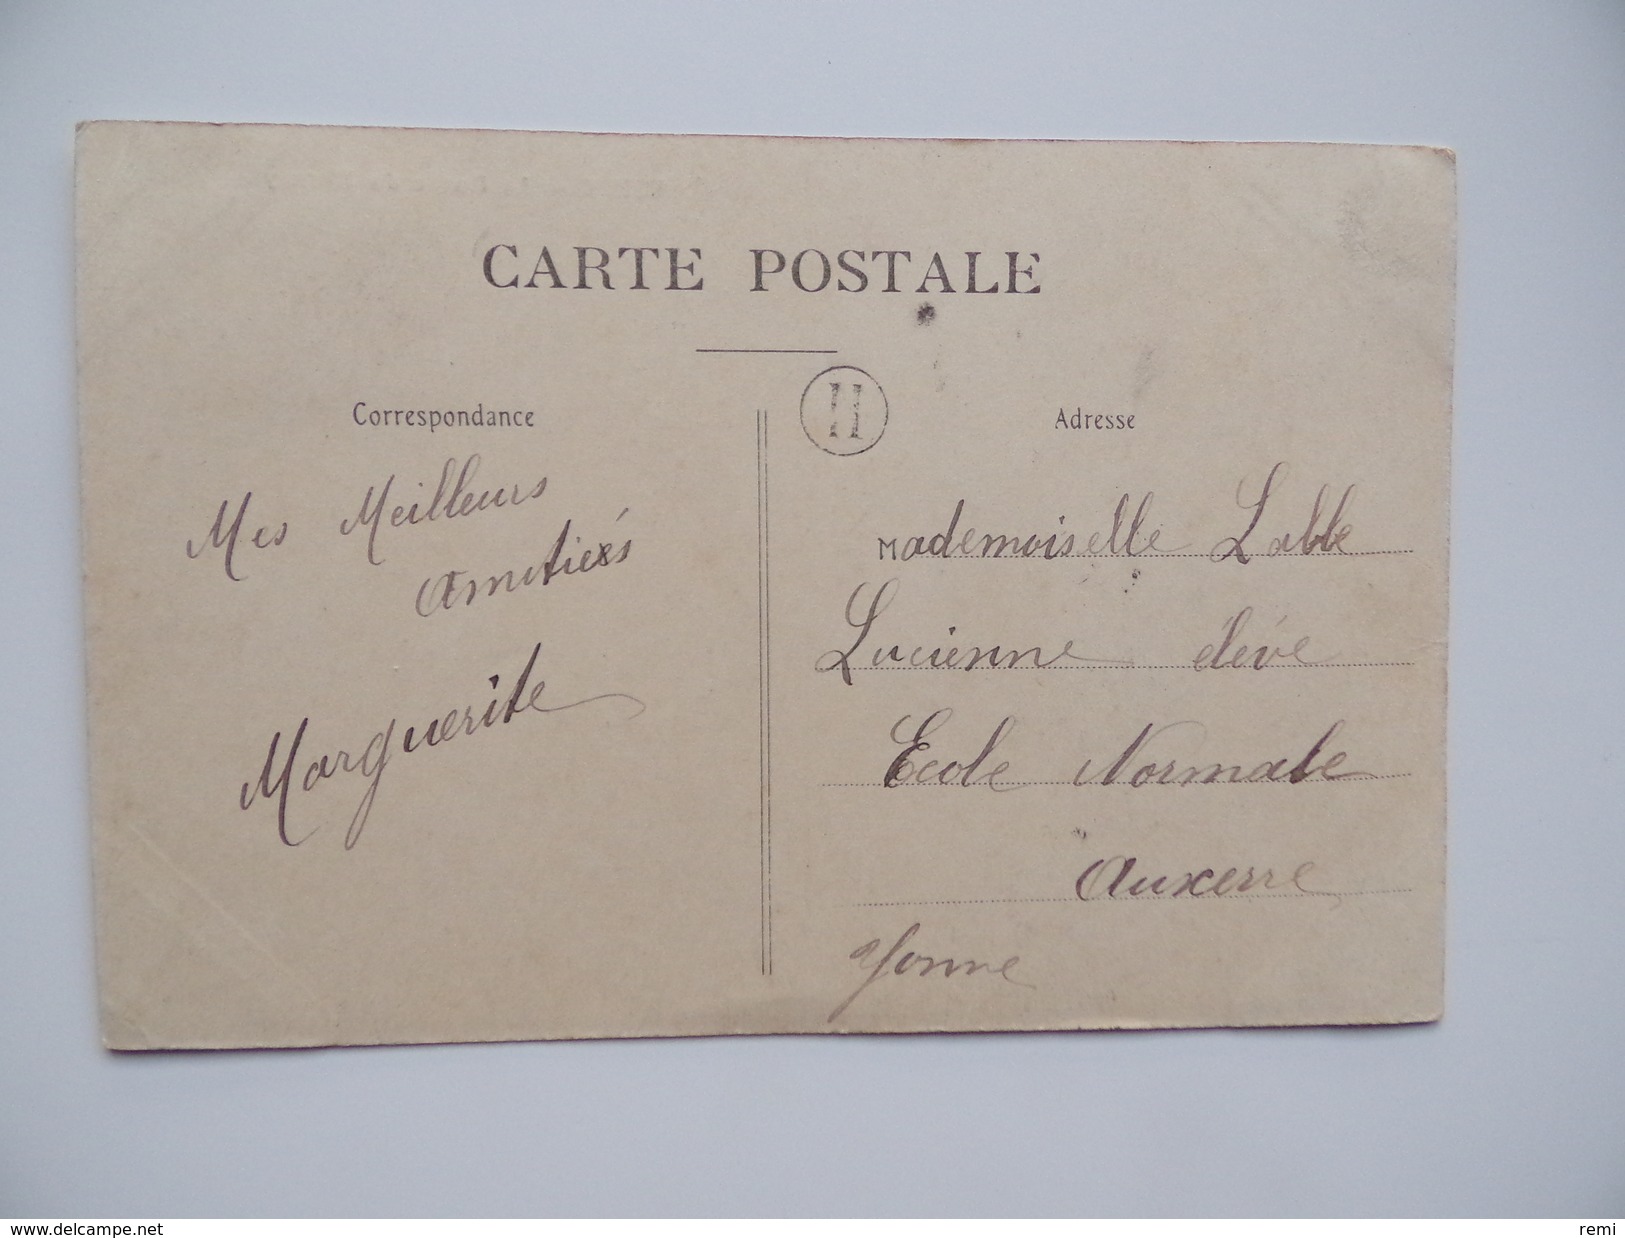 CARTE POSTALE
Correspondance
Mes Meilleurs
Amitiées
Marguerite
H
Adresse
Mademoiselle Labbe
Lucienne élève
Ecole Normale
Auxerre
Yonne
www.delcampe.net
remi